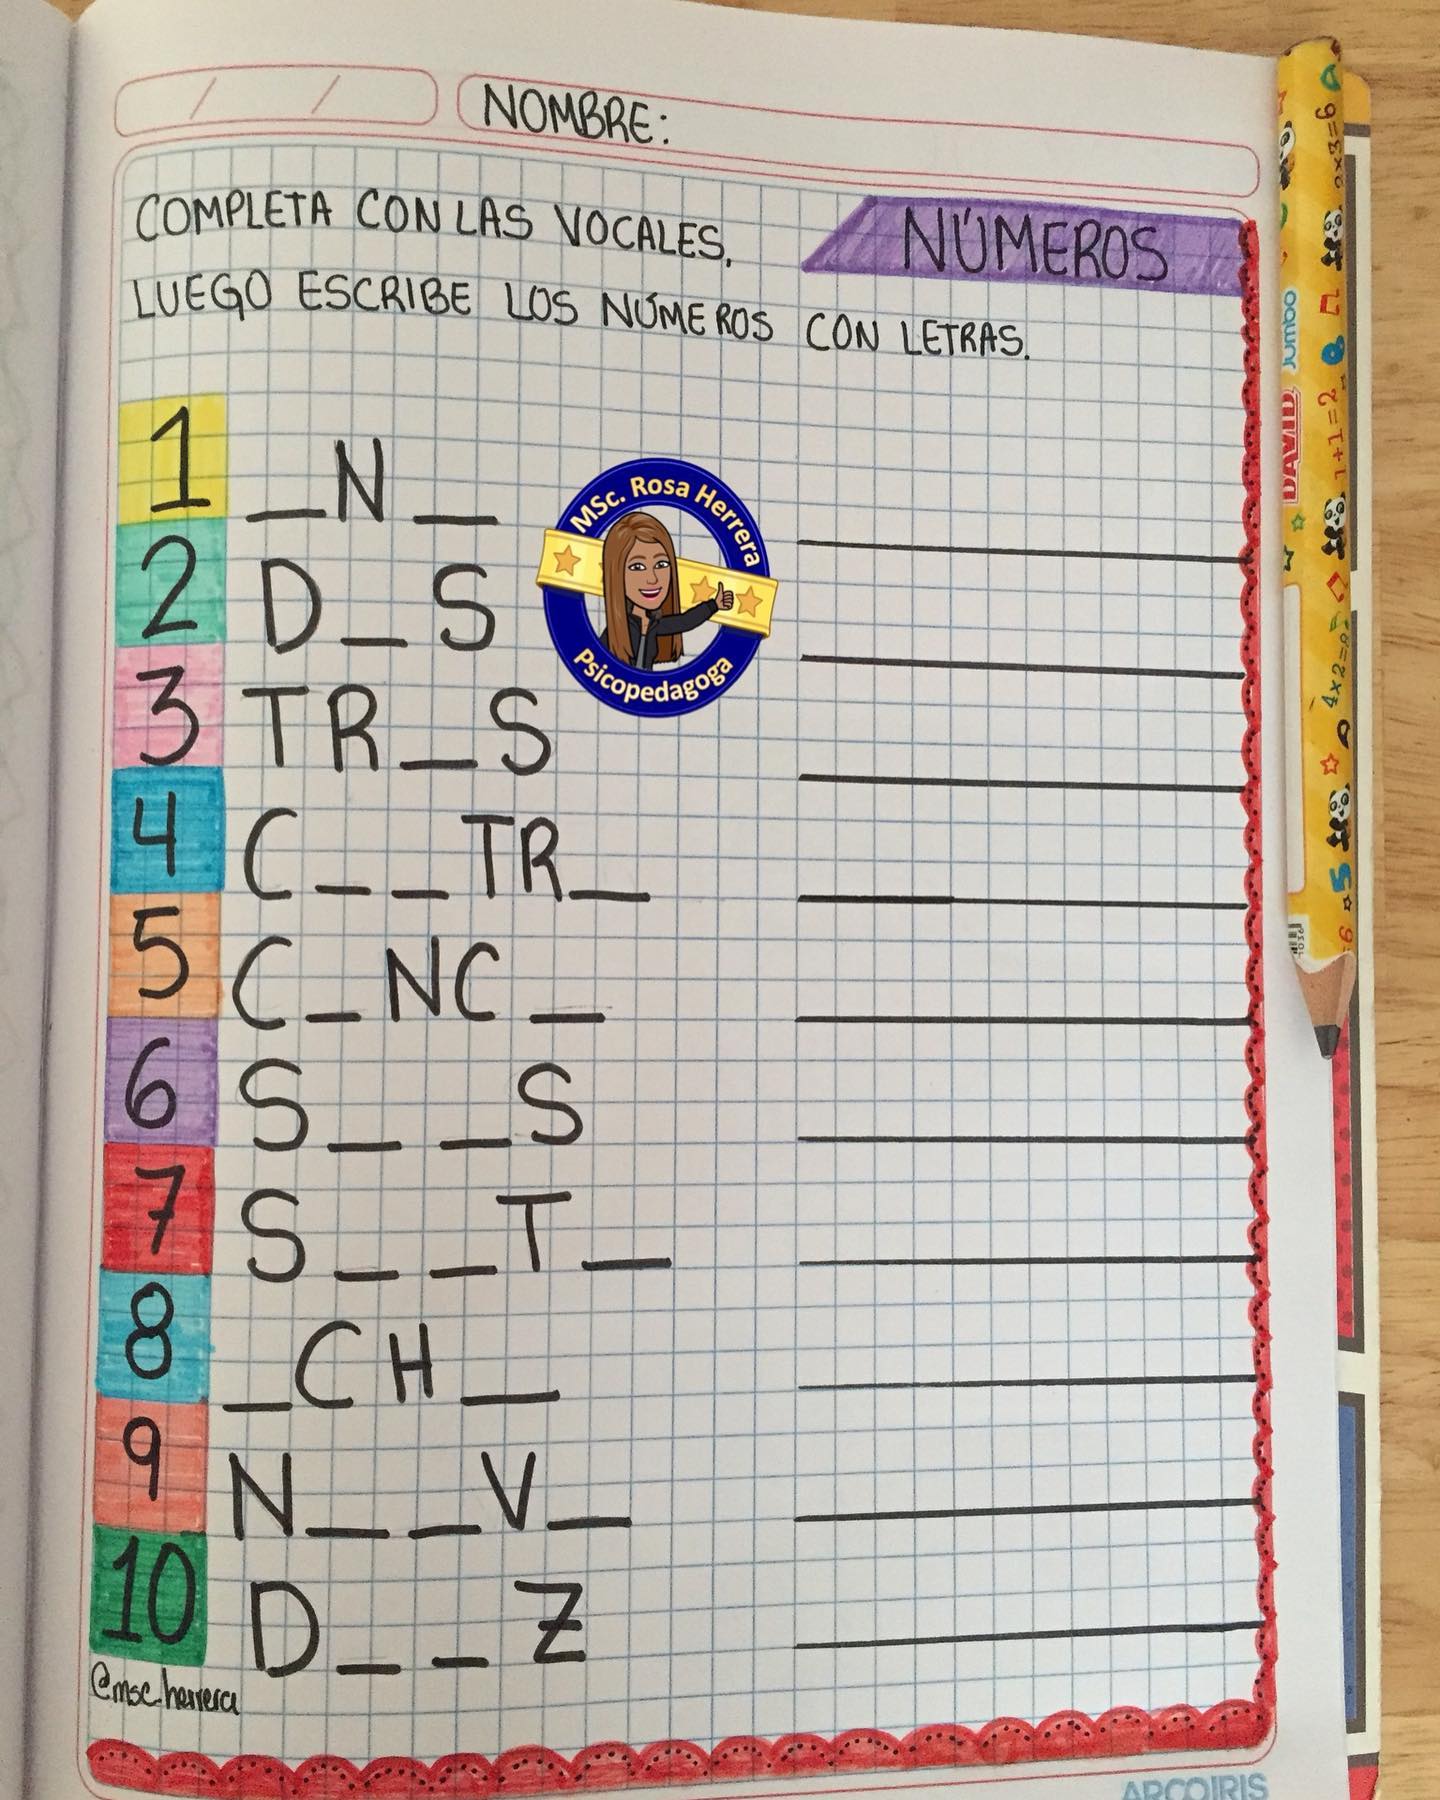 NOMBRE:
COMPLETA CON LAS VOCALES,
NÚMEROS
LUEGO ESCRIBE LOS NÚMEROS CON LETRAS.
1 _N_
2 D_S
3 TR_S
4 C__TR_
5 C_NC_
6 S__S
7 S__T_
8 _CH_
9 N__V_
10 D__Z
MSc. Rosa Herrera
Psicopedagoga
@msc.herrera
ARCOIRIS
DAVID
Jumbo
1+1=2
4x2=
2x3=6